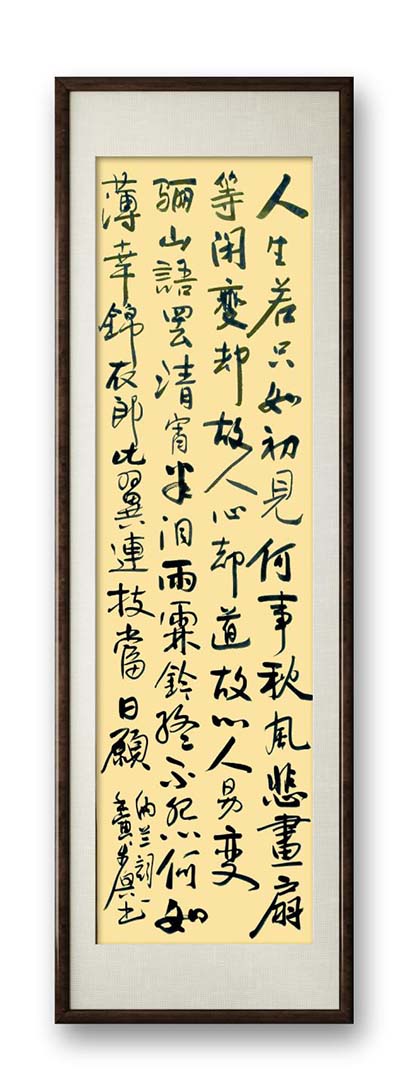 人生若只如初見何事秋風悲畫扇
等闲變却故人心却道故心人易变
骊山語罢清宵半泪雨霖鈴終不怨何如
薄幸錦衣郎比翼連枝當日願
纳兰詞